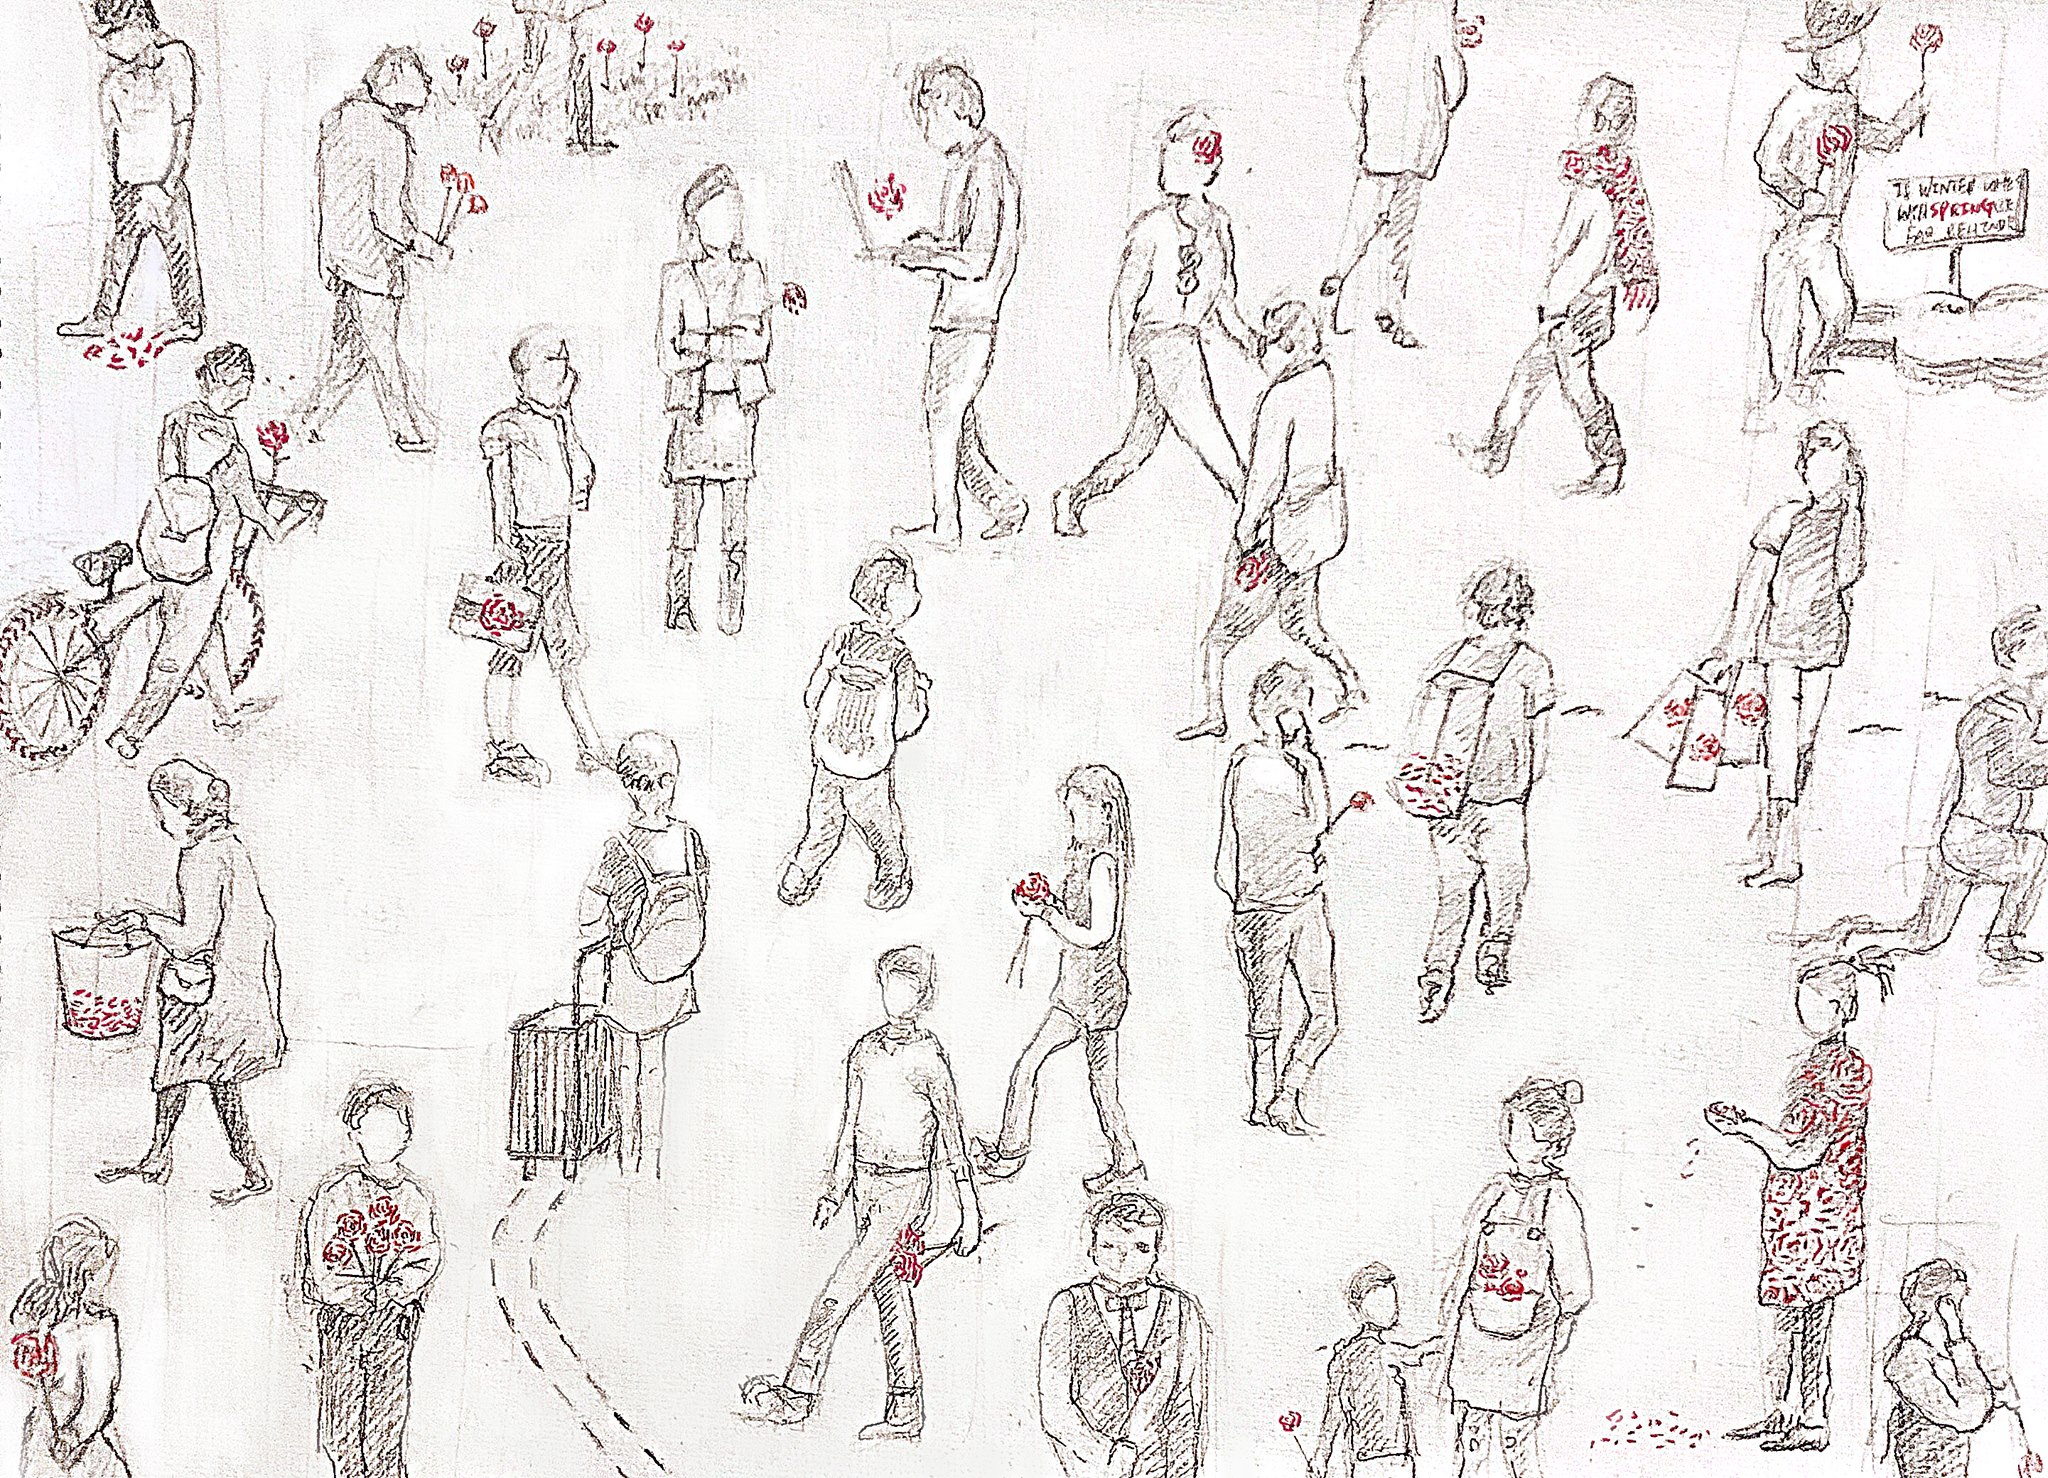 IF WINTER COMES
WILL SPRING BE
FAR BEHIND